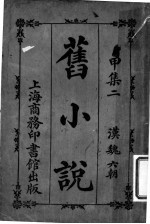 甲集二 漢魏六朝
舊小説
上海商務印書館出版